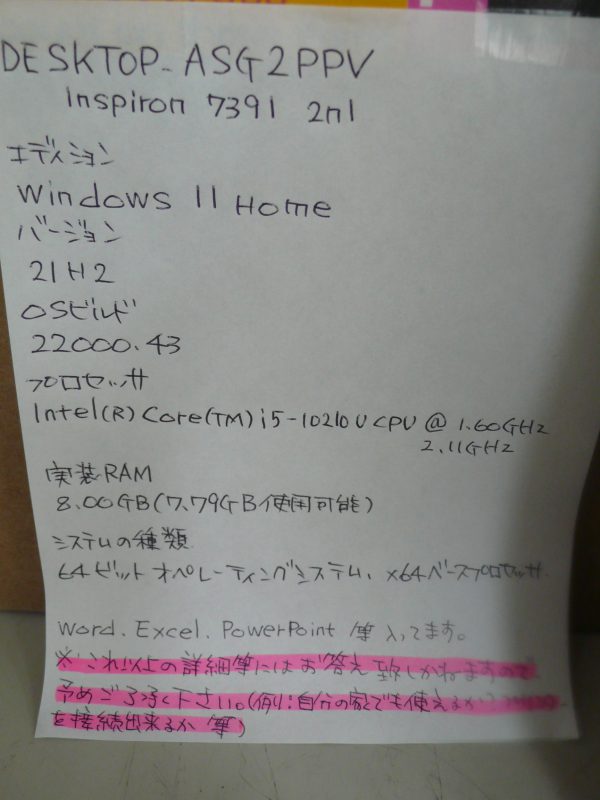 DESKTOP-ASG2PPV
Inspiron 7391 2n1
エディション
Windows 11 Home
バージョン
21H2
OSビルド
22000.43
プロセッサ
Intel(R) Core(TM) i5-10210U CPU @ 1.60GHz
2.11GHz
実装RAM
8.00GB(7.79GB使用可能)
システムの種類
64ビットオペレーティングシステム、x64ベースプロセッサ
Word、Excel、PowerPoint 等入ってます。
※これ以上の詳細等にはお答え致しかねますので
予めご了承下さい。(例:自分の家でも使えるか?
を接続出来るか 等)